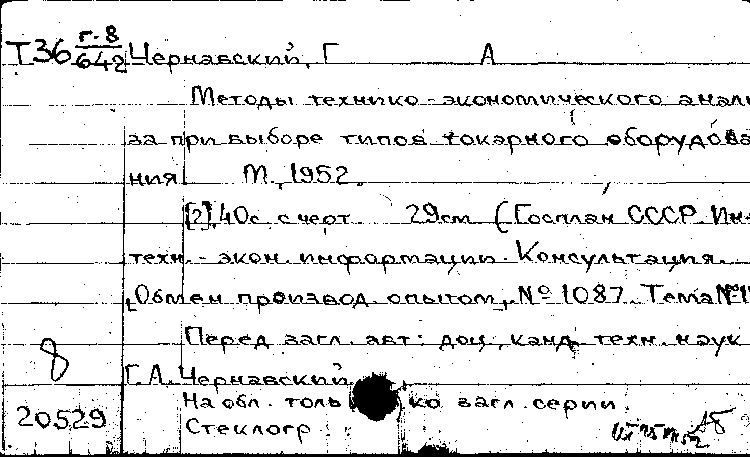 Т36 г-8/642 Чернавский, Г А
Методы технико-экономического анали
за при выборе типов токарного оборудова
ния М., 1952.
[2], 40с. с черт. 29см (Госплан СССР. Ин-
техн.-экон. информации. Консультация.
"Обмен производ. опытом", № 1087. Тема №
Перед загл. авт: доц., канд. техн. наук
Г. А. Чернавский
На обл. только загл. серии.
Стеклогр
8
20529